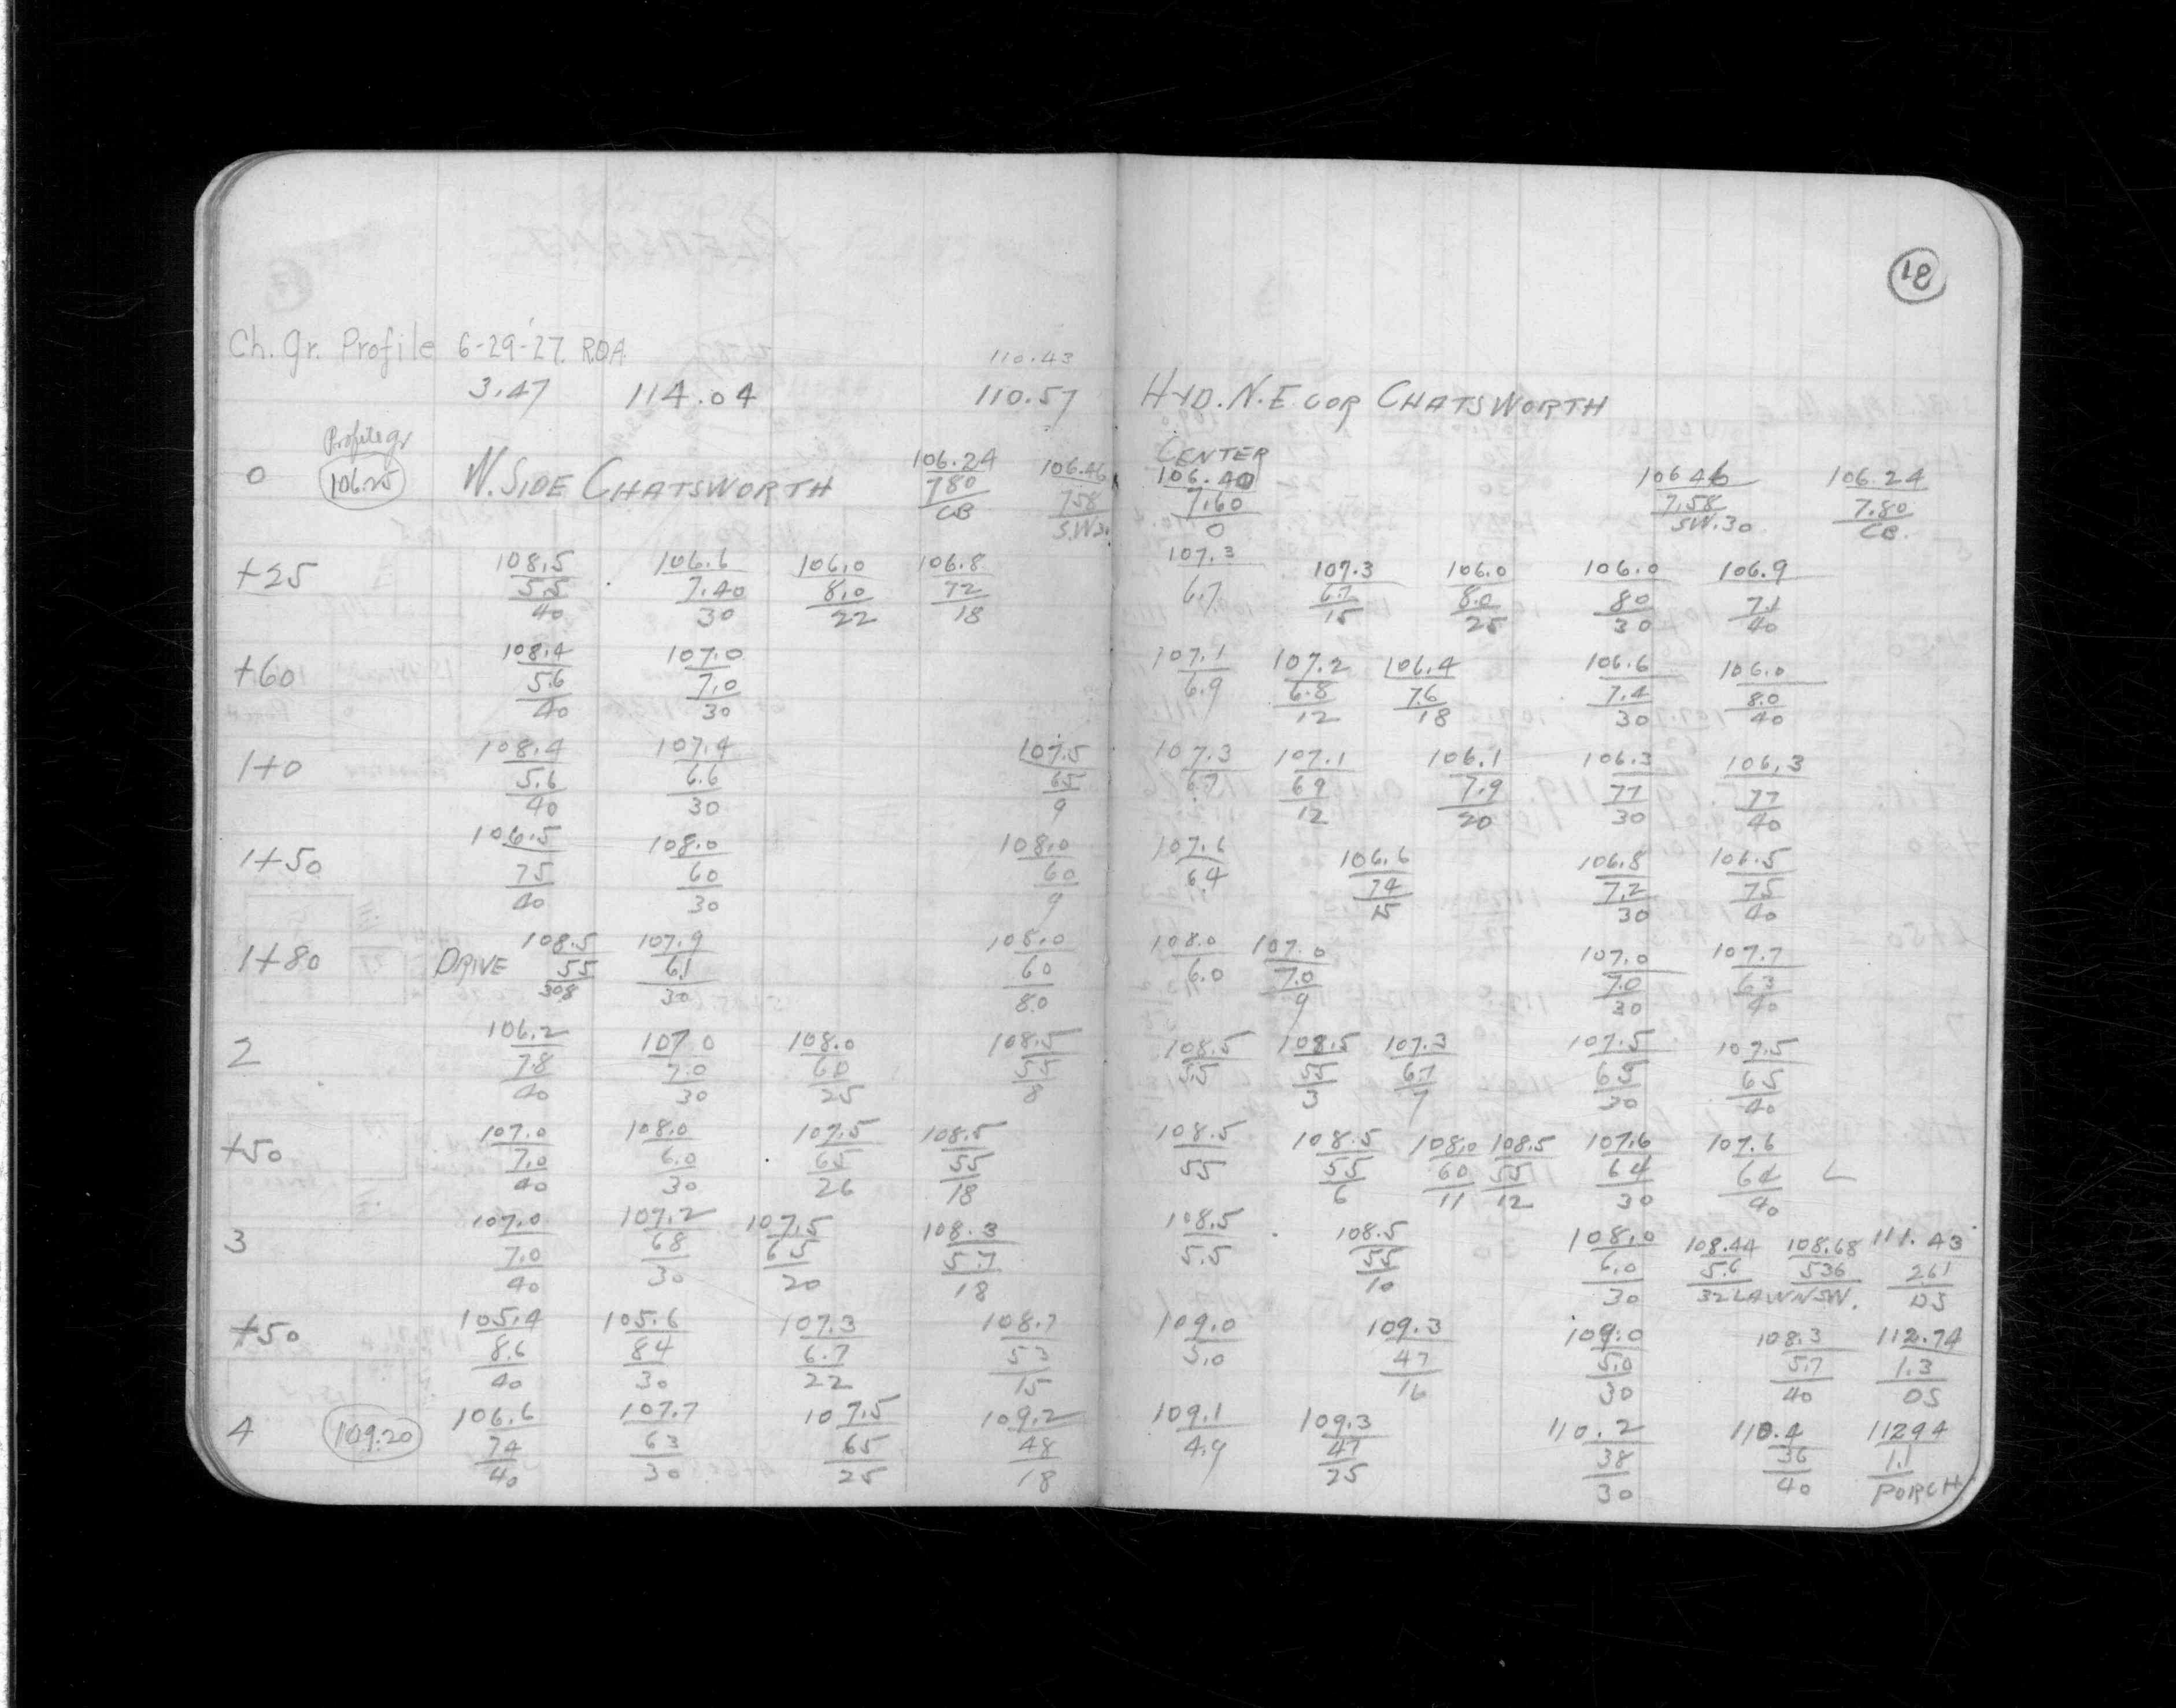 18
Ch. Gr. Profile 6-29-'27. R.O.A. 110.43
3.47 114.04 110.57 HYD. N.E. COR CHATSWORTH
Profile gr CENTER
0 106.25 W. SIDE CHATSWORTH 106.24 106.46 106.40 106.46 106.24
780 758 7.60 7.58 7.80
CB S.W.30 0 SW.30 CB.
+25 108.5 106.6 106.0 106.8 107.3 107.3 106.0 106.0 106.9
5.5 7.40 8.0 72 6.7 6.7 8.0 80 7.1
40 30 22 18 15 25 30 40
+60 108.4 107.0 107.1 107.2 106.4 106.6 106.0
5.6 7.0 6.9 6.8 76 7.4 8.0
40 30 12 18 30 40
1+0 108.4 107.4 107.5 107.3 107.1 106.1 106.3 106.3
5.6 6.6 65 67 69 7.9 77 77
40 30 9 12 20 30 40
1+50 106.5 108.0 108.0 107.6 106.6 106.8 106.5
75 60 60 64 74 7.2 75
40 30 9 15 30 40
1+80 DRIVE 108.5 107.9 108.0 108.0 107.0 107.0 107.7
55 61 60 6.0 7.0 7.0 63
308 30 80 9 30 40
2 106.2 107.0 108.0 108.5 108.5 108.5 107.3 107.5 107.5
78 7.0 60 55 55 55 67 65 65
40 30 25 8 3 7 30 40
+50 107.0 108.0 107.5 108.5 108.5 108.5 108.0 108.5 107.6 107.6
7.0 6.0 65 55 55 55 60 55 64 64
40 30 26 18 6 11 12 30 40
3 107.0 107.2 107.5 108.3 108.5 108.5 108.0 108.44 108.68 111.43
7.0 68 65 5.7 5.5 55 6.0 5.6 536 261
40 30 20 18 10 30 32 LAWN SW. DS
+50 105.4 105.6 107.3 108.7 109.0 109.3 109.0 108.3 112.74
8.6 84 6.7 53 5.0 47 5.0 5.7 1.3
40 30 22 15 16 30 40 DS
4 109.20 106.6 107.7 107.5 109.2 109.1 109.3 110.2 110.4 112.94
74 63 65 48 4.9 47 38 36 1.1
40 30 25 18 25 30 40 PORCH